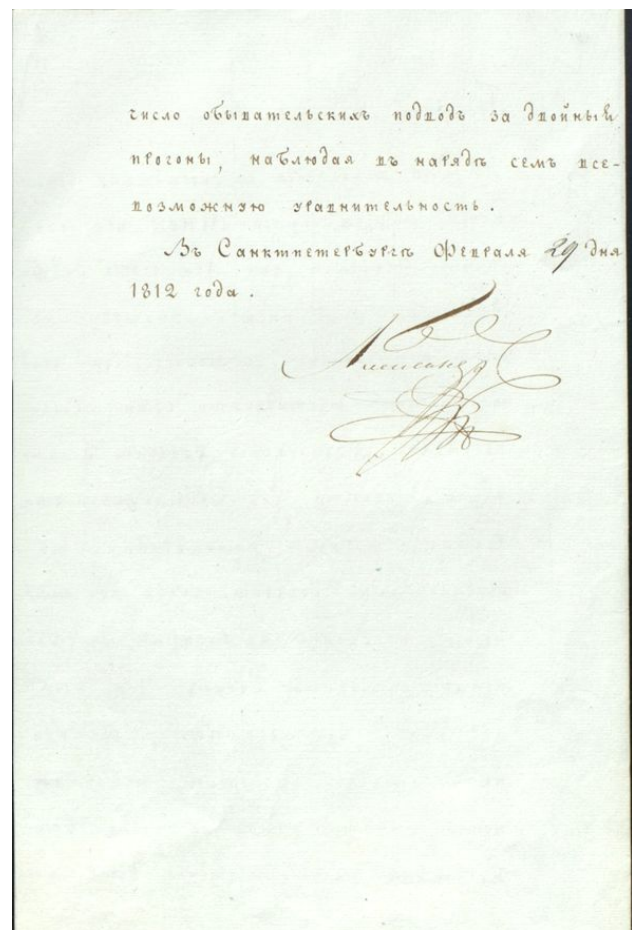 число обывательскихъ подводъ за двойныя
прогоны, наблюдая въ нарядѣ семъ все-
возможную уравнительность.
Въ Санктпетербургѣ Февраля 29 дня
1812 года.
Александръ